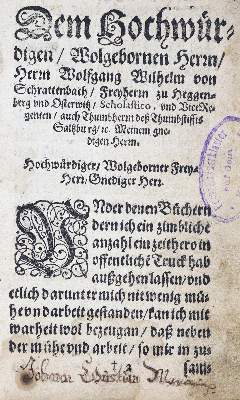 Dem Hochwür-
digen / Wolgebornen Herrn /
Herrn Wolfgang Wilhelm von
Schrattenbach / Freyherrn zu Heggen-
berg vnd Osterwitz / Scholastico, vnd ViceRe-
genten / auch Thumbherrn deß Thumbstiffts
Saltzburg / ꝛc. Meinem gne-
digen Herrn.
Hochwürdiger / Wolgeborner Frey-
Herr / Gnediger Herr.
VNder denen Büchern
dern ich ein zimbliche
anzahl ein zeithero in
offentlichẽ Truck hab
außgehen lassen / vnd
etlich darunter mich nit wenig mü-
he vnd arbeit gestanden / kan ich mit
warheit wol bezeugen / daß neben
der mühe vnd arbeit / so mir in zu
sams
Johann Christian